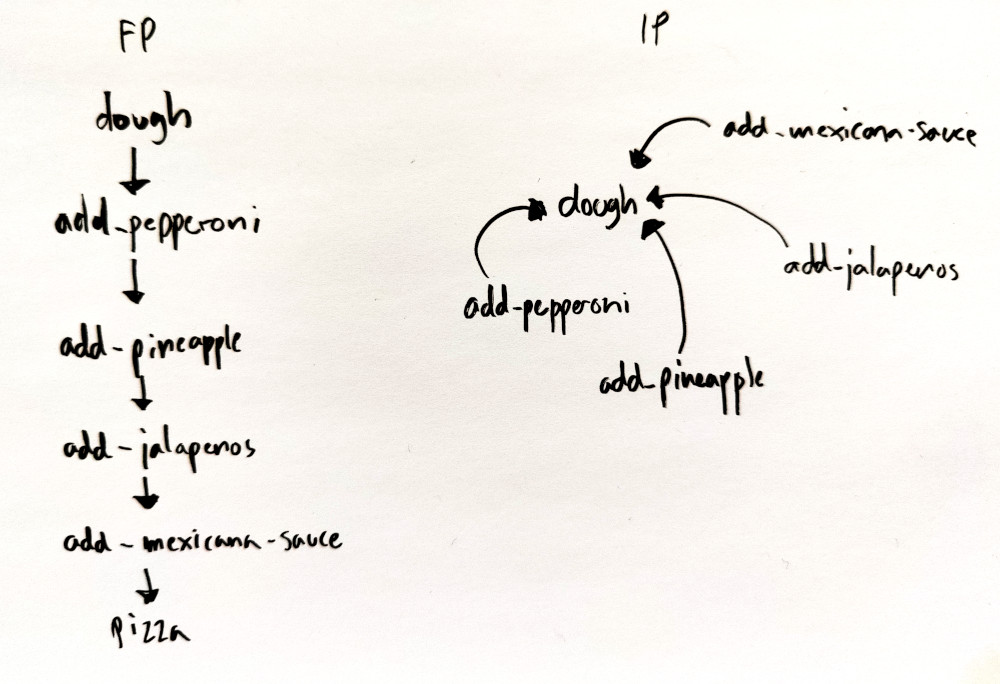 FP
dough
add-pepperoni
add-pineapple
add-jalapenos
add-mexicana-sauce
pizza
IP
add-mexicana-sauce
dough
add-jalapenos
add-pepperoni
add-pineapple